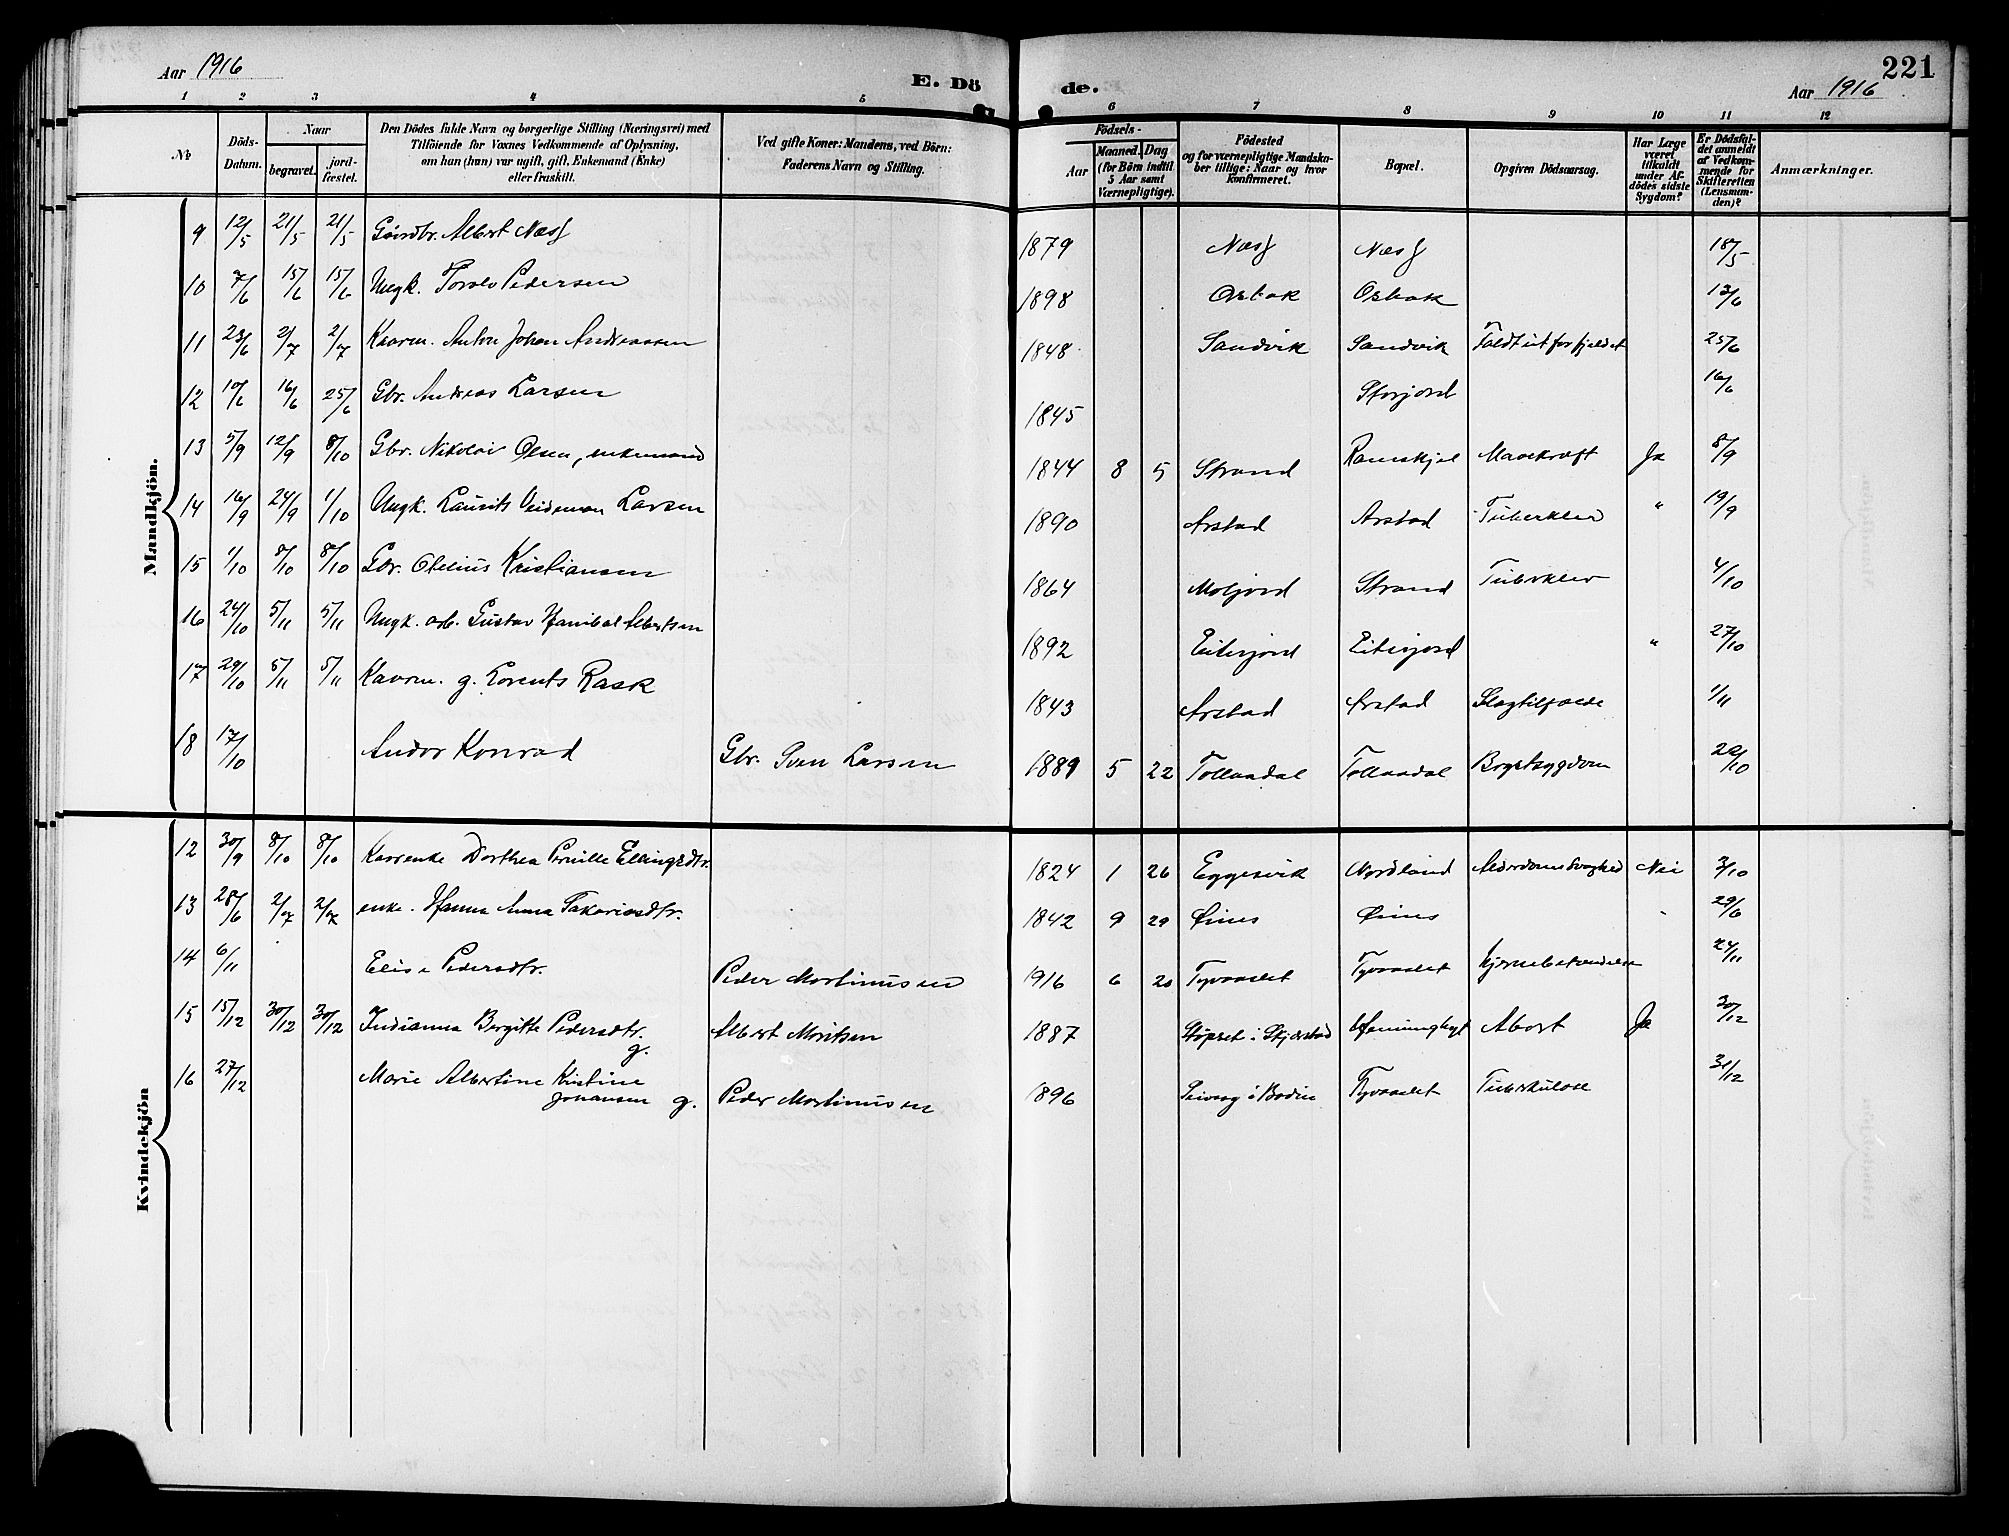 Aar 1916
E. Dö
de.
221
Aar 1916
1 2 3 4 5 6 7 8 9 10 11 12
No
Döds-
Datum.
Naar
begravet.
jord-
fæstet.
Den Dödes fulde Navn og borgerlige Stilling (Næringsvei) med
Tilföiende for Voxnes Vedkommende af Oplysning,
om han (hun) var ugift, gift, Enkemand (Enke)
eller fraskilt.
Ved gifte Koner: Mandens, ved Börn:
Faderens Navn og Stilling.
Födsels-
Aar
Maaned. Dag
(for Börn indtil
5 Aar samt
Værnepligtige).
Födested
og for værnepligtige Mandska-
ber tillige: Naar og hvor
konfirmeret.
Bopæl.
Opgiven Dödsaarsag.
Har Læge
været
tilkaldt
under Af-
dödes sidste
Sygdom?
Er Dödsfal-
det anmeldt
af Vedkom-
mende for
Skifteretten
(Lensman-
den)?
Anmærkninger.
Mandkjön.
9 12/5 21/5 21/5 Gaardbr. Albert Næss 1879 Næss Næss 18/5
10 7/6 15/6 15/6 Ungk. Torolv Pedersen 1898 Osbak Osbak 13/6
11 23/6 2/7 2/7 Kaarm. Anton Johan Andreassen 1848 Sandvik Sandvik Faldt ut for fjeldet 25/6
12 10/6 16/6 25/6 Gbr. Andreas Larsen 1845 Storjord 16/6
13 5/9 12/9 8/10 Gbr. Nikolai Olsen, enkemand 1844 8 5 Strand Ramskjel Mavekræft Ja 8/9
14 16/9 24/9 1/10 Ungk. Laurits Veideman Larsen 1890 Arstad Arstad Tuberkler " 19/9
15 1/10 8/10 8/10 Gbr. Otelius Kristiansen 1864 Moljord Strand Tuberkler 4/10
16 24/10 5/11 5/11 Ungk. arb. Gustav Hanibal Albertsen 1892 Eiterjord Eiterjord " 27/10
17 29/10 5/11 5/11 Kaarm. g. Lorents Rask 1843 Arstad Arstad Slagtilfælde 1/11
18 17/10 Andor Konrad Gbr. Sven Larsen 1889 5 22 Tollaadal Tollaadal Brystsygdom 22/10
Kvindekjön
12 30/9 8/10 8/10 Kaarenke Dorthea Pernille Ellingsdtr. 1824 1 26 Eggesvik Nordland Alderdomssvaghed Nei 3/10
13 28/6 2/7 2/7 enke. Hanna Anna Sakariasdtr. 1842 9 29 Øines Øines 29/6
14 6/11 Elise Pedersdtr. Peder Mortinusen 1916 6 20 Tyvaaslet Tyvaaslet Hjernebetændelse 24/11
15 15/12 30/12 30/12 Indianna Bergitte Pedersdtr. g. Albert Moritsen 1887 Støpset i Skjerstad Abort Ja 30/12
16 27/12 Marie Albertine Kristine
Johansen g. Peder Mortinusen 1896 Seivaag i Bodin Tyvaaslet Tuberkulose 31/12